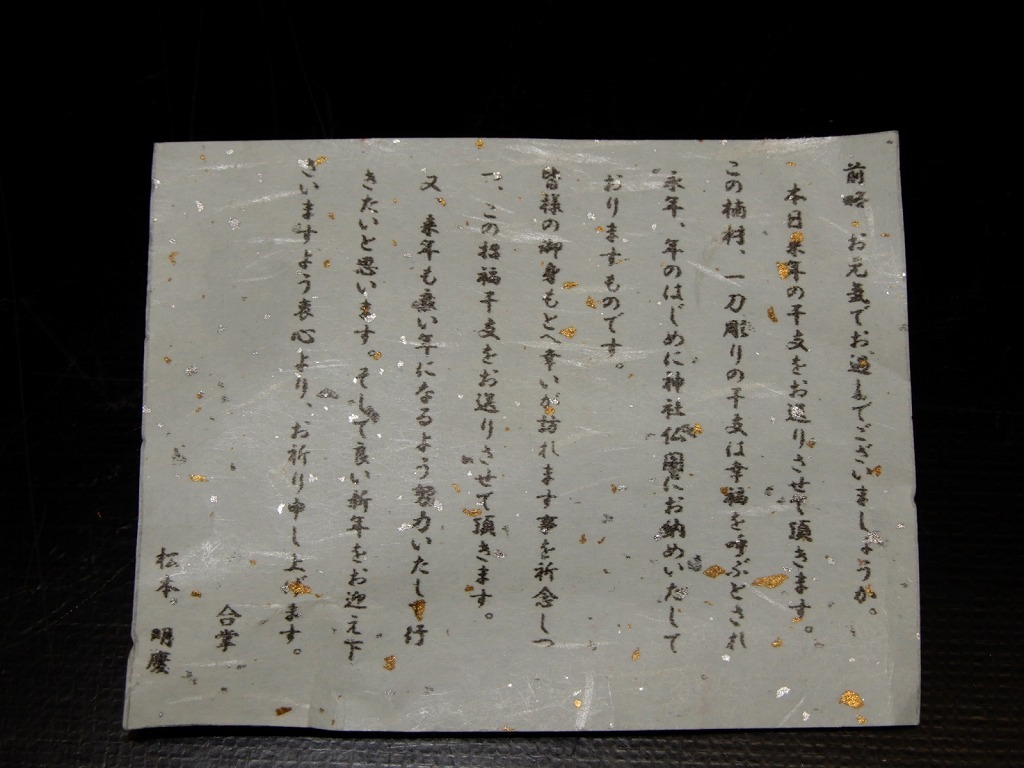 前略 お元気でお過しでございましょうか。
本日来年の干支をお送りさせて頂きます。
この楠材、一刀彫りの干支は幸福を呼ぶとされ
永年、年のはじめに神社仏閣にお納めいたして
おりますものです。
皆様の御身もとへ幸いが訪れます事を祈念しつ
つ、この招福干支をお送りさせて頂きます。
又、来年も良い年になるよう努力いたして行
きたいと思います。そして良い新年をお迎え下
さいますよう衷心より、お祈り申し上げます。
合掌
松本 明慶